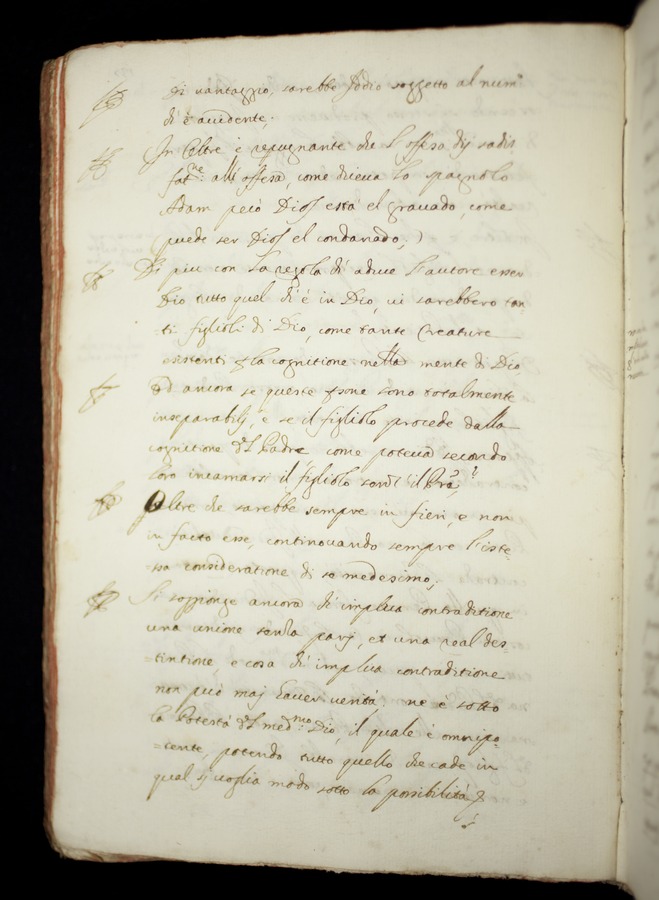 di vantaggio, sarebbe Iddio soggetto al num.o
di accidente;
In oltre è repugnante che l'offesa dij sadis
fat.ne all'offesa, come diceva lo spagnolo
Adam pecò Dios està el gravado, come
puede ser Dios el condanado;)
Di più con la regola di l'autore esser
Dio tutto quel di è in Dio, vi sarebbero tan
-ti figlioli di Dio, come tante Creature
esistenti p la cognitione nella mente di Dio
Ed ancora se queste psone sono totalmente
inseparabilj, e se il figliolo procede dalla
cognitione del Padre come poteva secondo
loro incarnarsi il figliolo senza il Pre;?
Oltre che sarebbe sempre in fieri, e non
in facto esse, continovando sempre l'istes-
-sa consideratione di se medesimo;
Si soggionge ancora di implica contraditione
una unione senza parj, et una real des=
=tintione, e cosa di implica contraditione
non può maj haver verità; ne è sotto
la Potestà del med.mo Dio, il quale è omnipo-
=tente, potendo tutto quello che cade in
qual si voglia modo sotto la possibilità